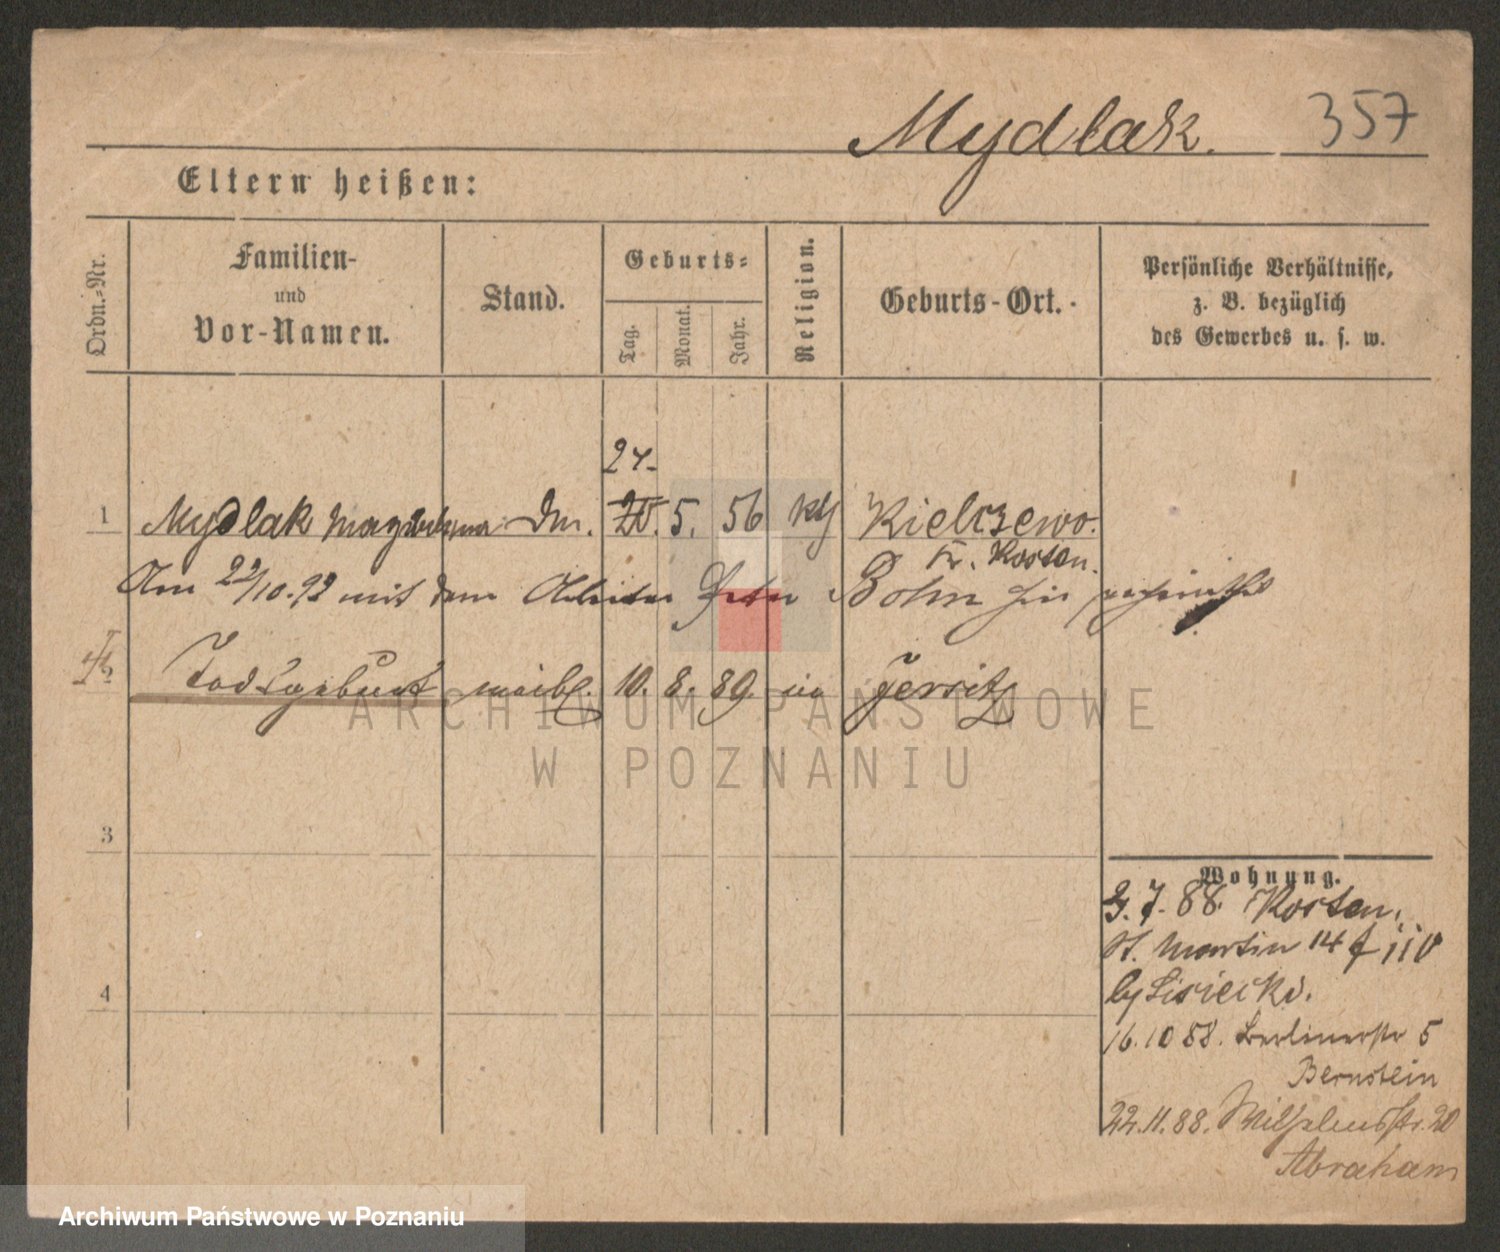 Mydlak. 357
Eltern heißen:
Ordn.-Nr.
Familien-
und
Vor-Namen.
Stand.
Geburts-
Tag.
Monat.
Jahr.
Religion.
Geburts-Ort.
Persönliche Verhältnisse,
z. B. bezüglich
des Gewerbes u. s. w.
24.
1 Mydlak Magdalena 20. 5. 56 kth Kielczewo.
Kr. Kosten.
Am 22/10.92 mit dem Arbeiter Peter Bohm hier
2 Todtgeburt weibl. 10. 8. 89. Jersitz
3
4
Wohnung.
3. 7. 88. Kosten.
St. Martin 14
by Lisiecki.
16.10 88. Berlinerstr 5
Bernstein
22.11.88. Wilhelmsstr. 20
Abraham
ARCHIWUM PAŃSTWOWE
W POZNANIU
Archiwum Państwowe w Poznaniu